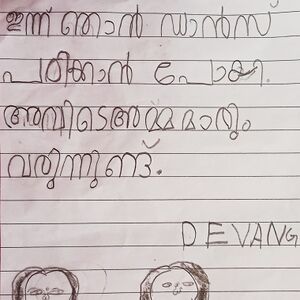 ഇന്ന് ഞാൻ ഡാൻസ്
പഠിക്കാൻ പോകും.
അമ്പിടെഅമ്മമാരും
വരുന്നുണ്ട്.
DEVANG